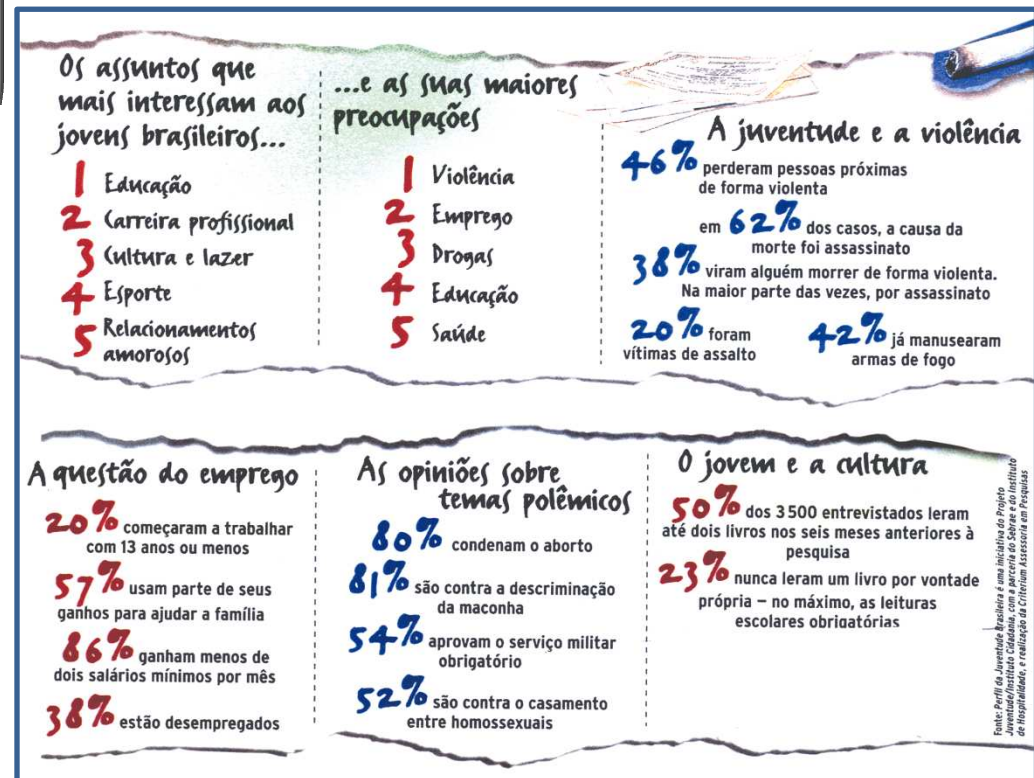 Os assuntos que
mais interessam aos
jovens brasileiros...
1 Educação
2 Carreira profissional
3 Cultura e lazer
4 Esporte
5 Relacionamentos
amorosos
...e as suas maiores
preocupações
1 Violência
2 Emprego
3 Drogas
4 Educação
5 Saúde
A juventude e a violência
46% perderam pessoas próximas
de forma violenta
em 62% dos casos, a causa da
morte foi assassinato
38% viram alguém morrer de forma violenta.
Na maior parte das vezes, por assassinato
20% foram
vítimas de assalto
42% já manusearam
armas de fogo
A questão do emprego
20% começaram a trabalhar
com 13 anos ou menos
57% usam parte de seus
ganhos para ajudar a família
86% ganham menos de
dois salários mínimos por mês
38% estão desempregados
As opiniões sobre
temas polêmicos
80% condenam o aborto
81% são contra a descriminação
da maconha
54% aprovam o serviço militar
obrigatório
52% são contra o casamento
entre homossexuais
O jovem e a cultura
50% dos 3500 entrevistados leram
até dois livros nos seis meses anteriores à
pesquisa
23% nunca leram um livro por vontade
própria – no máximo, as leituras
escolares obrigatórias
Fonte: Perfil da Juventude Brasileira é uma iniciativa do Projeto
Juventude/Instituto Cidadania, com a parceria do Sebrae e do Instituto
de Hospitalidade, e realização da Criterium Assessoria em Pesquisas